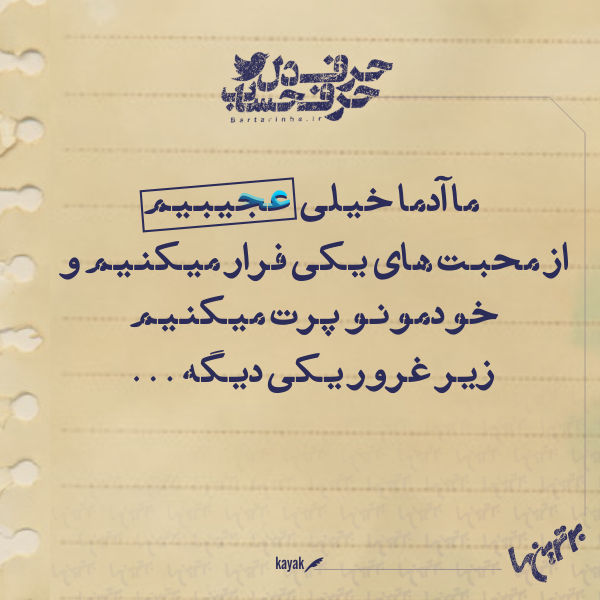 حرف دل
حرف حساب
Bartarinha.ir
ما آدما خیلی عجیبیم
از محبت های یکی فرار میکنیم و
خودمونو پرت میکنیم
زیر غرور یکی دیگه...
kayak
برترین ها